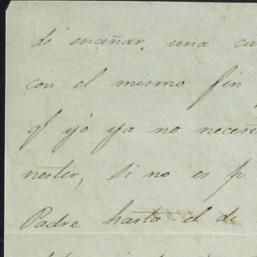 de enseñar, una ca
con el mismo fin
q! yo ya no neces
nester, si no es p.
Padre hasta el de